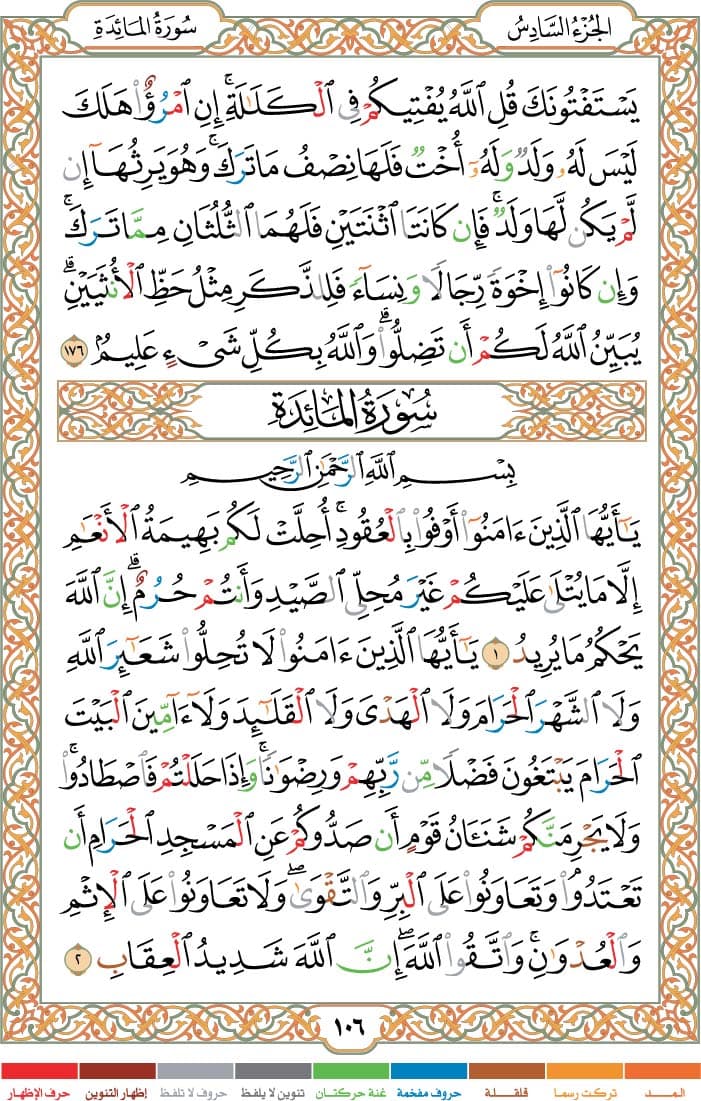 الجُزْءُ السَّادِسُ
سُورَةُ المَائِدَةِ
يَسْتَفْتُونَكَ قُلِ ٱللَّهُ يُفْتِيكُمْ فِى ٱلْكَلَٰلَةِ ۚ إِنِ ٱمْرُؤٌا۟ هَلَكَ
لَيْسَ لَهُۥ وَلَدٌ وَلَهُۥٓ أُخْتٌ فَلَهَا نِصْفُ مَا تَرَكَ ۚ وَهُوَ يَرِثُهَآ إِن
لَّمْ يَكُن لَّهَا وَلَدٌ ۚ فَإِن كَانَتَا ٱثْنَتَيْنِ فَلَهُمَا ٱلثُّلُثَانِ مِمَّا تَرَكَ ۚ
وَإِن كَانُوٓا۟ إِخْوَةً رِّجَالًا وَنِسَآءً فَلِلذَّكَرِ مِثْلُ حَظِّ ٱلْأُنثَيَيْنِ ۗ
يُبَيِّنُ ٱللَّهُ لَكُمْ أَن تَضِلُّوا۟ ۗ وَٱللَّهُ بِكُلِّ شَىْءٍ عَلِيمٌۢ ١٧٦
سُورَةُ المَائِدَةِ
بِسْمِ ٱللَّهِ ٱلرَّحْمَٰنِ ٱلرَّحِيمِ
يَٰٓأَيُّهَا ٱلَّذِينَ ءَامَنُوٓا۟ أَوْفُوا۟ بِٱلْعُقُودِ ۚ أُحِلَّتْ لَكُم بَهِيمَةُ ٱلْأَنْعَٰمِ
إِلَّا مَا يُتْلَىٰ عَلَيْكُمْ غَيْرَ مُحِلِّى ٱلصَّيْدِ وَأَنتُمْ حُرُمٌ ۗ إِنَّ ٱللَّهَ
يَحْكُمُ مَا يُرِيدُ ١ يَٰٓأَيُّهَا ٱلَّذِينَ ءَامَنُوا۟ لَا تُحِلُّوا۟ شَعَٰٓئِرَ ٱللَّهِ
وَلَا ٱلشَّهْرَ ٱلْحَرَامَ وَلَا ٱلْهَدْىَ وَلَا ٱلْقَلَٰٓئِدَ وَلَآ ءَآمِّينَ ٱلْبَيْتَ
ٱلْحَرَامَ يَبْتَغُونَ فَضْلًا مِّن رَّبِّهِمْ وَرِضْوَٰنًا ۚ وَإِذَا حَلَلْتُمْ فَٱصْطَادُوا۟ ۚ
وَلَا يَجْرِمَنَّكُمْ شَنَـَٔانُ قَوْمٍ أَن صَدُّوكُمْ عَنِ ٱلْمَسْجِدِ ٱلْحَرَامِ أَن
تَعْتَدُوا۟ ۘ وَتَعَاوَنُوا۟ عَلَى ٱلْبِرِّ وَٱلتَّقْوَىٰ ۖ وَلَا تَعَاوَنُوا۟ عَلَى ٱلْإِثْمِ
وَٱلْعُدْوَٰنِ ۚ وَٱتَّقُوا۟ ٱللَّهَ ۖ إِنَّ ٱللَّهَ شَدِيدُ ٱلْعِقَابِ ٢
١٠٦
المـــد تركت رسما قلقـلة حروف مفخمة غنة حركتان تنوين لا يلفظ حروف لا تلفظ إظهار التنوين حرف الإظهار